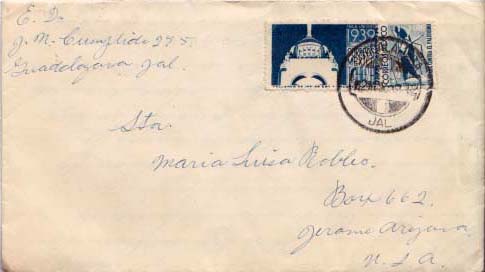 E. D.
J. M. Cumplido 295.
Guadalajara Jal.
1939
JAL
Srta.
Maria Luisa Robles.
Box 662.
Jerome Arizona.
U.S.A.